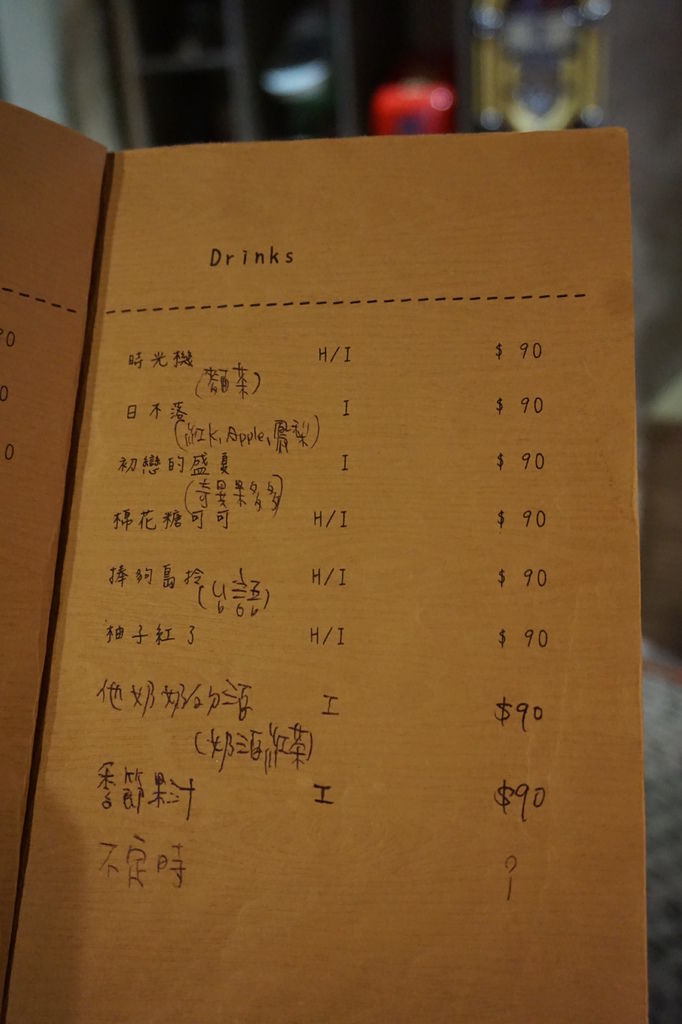 Drinks
時光機 H/I $ 90
(麵茶)
日不落 I $ 90
(紅K, Apple, 鳳梨)
初戀的盛夏 I $ 90
(奇異果多多)
棉花糖可可 H/I $ 90
捧夠島拎 H/I $ 90
柚子紅了 H/I $ 90
他奶奶的酒 I $90
(奶酒紅茶)
季節果汁 I $90
不定時 ?
90
0
0